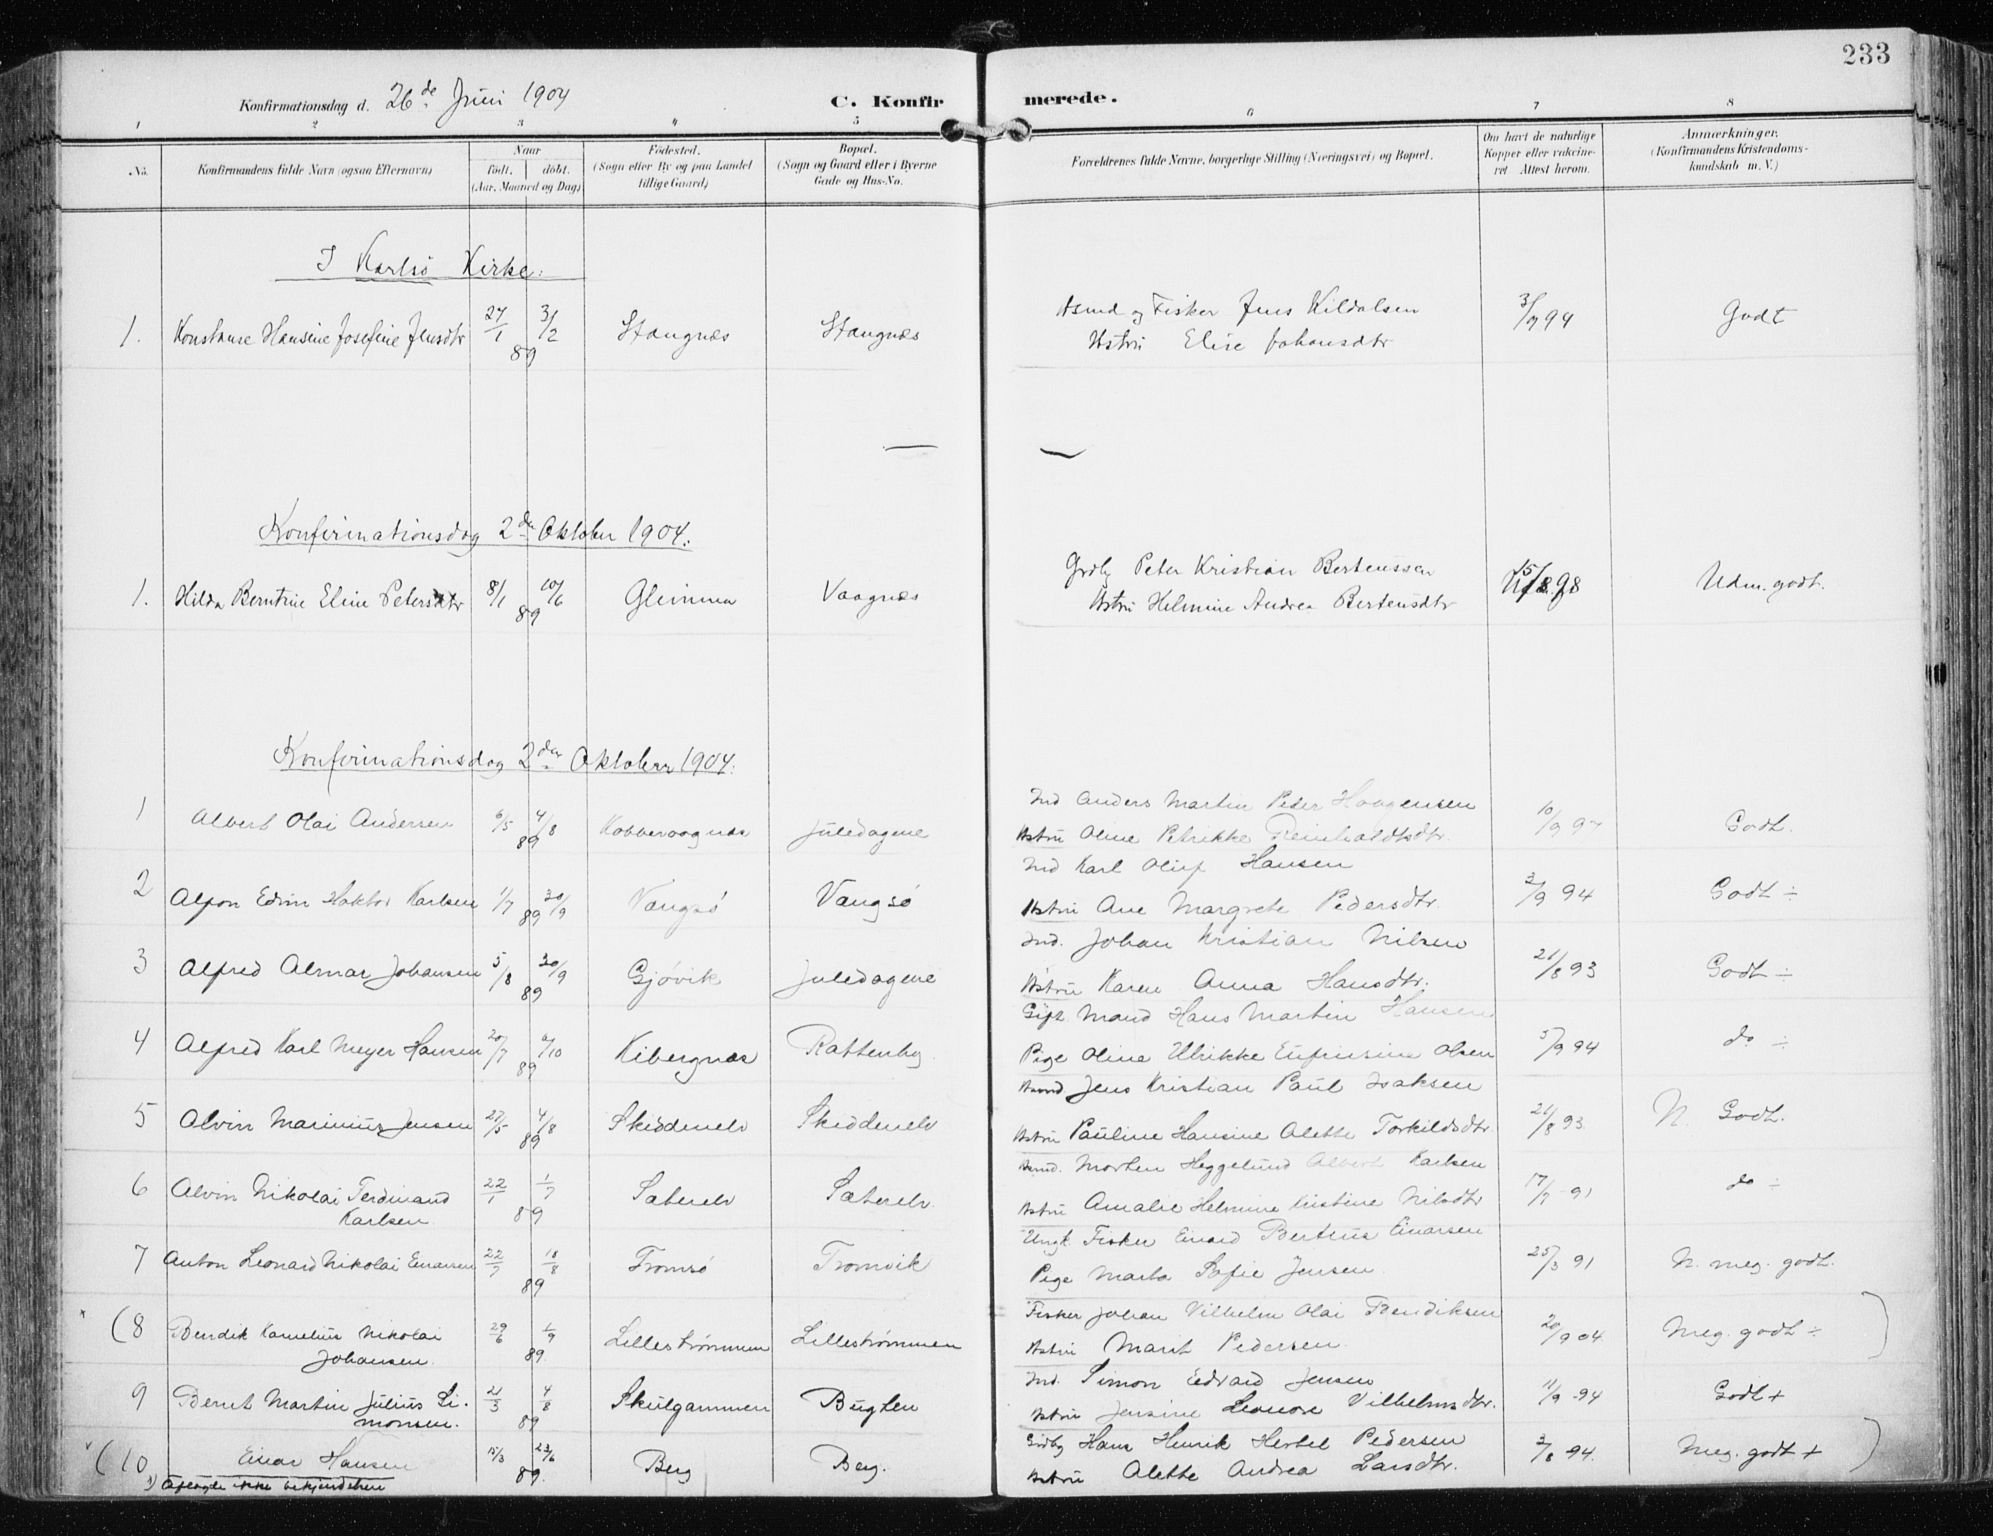 233
Konfirmationsdag d. 26de Juni 1904 C. Konfirmerede.
1 2 3 4 5 6 7 8
No. Konfirmandens fulde Navn (ogsaa Efternavn) Naar født. døbt. (Aar, Maaned og Dag) Fødested. (Sogn eller By og paa Landet tillige Gaard) Bopæl. (Sogn og Gaard eller i Byerne Gade og Hus-No. Forældrenes fulde Navne, borgerlige Stilling (Næringsvei) og Bopæl. Om havt de naturlige Kopper eller vakcineret. Attest herom. Anmærkninger. (Konfirmandens Kristendomskundskab m. V.)
I Karlsö Kirke.
1. Konstanse Hansine Josefine Jensdtr 27/1 3/2 89 Stangnæs Stangnæs
og Fisker Jens Kildalsen 3/9 94 Godt
Hstru Elise Johansdtr
Konfirmationsdag 2den Oktober 1904.
1. Hilda Berntine Eline Petersdtr 8/1 10/6 89 Glimma Vaagnæs
Grdbr Peter Kristian Bertenssen Udm. godt.
Hstru Helmine Andrea Bertensdtr
Konfirmationsdag 2den Oktober 1904.
1 Albert Olai Andersen 6/5 4/8 89 Kobbevaagnæs Juledagene
Ind Anders Martin Peder Haagensen 10/9 97 Godt.
Hstru Oline Petrikke Reinholdtsdtr.
2 Edvin Karlsen 1/7 30/9 89 Vangsö Vangsö
Ind Karl Oluf Hansen 3/9 94 Godt ÷
Hstru Ane Margrete Pedersdtr.
3 Alfred Almar Johansen 5/8 30/9 89 Gjövik Juledagene
Ind. Johan Kristian Nilsen 21/8 93 Godt ÷
Hstru Karen Anna Hansdtr.
4 Alfred Karl Meyer Hansen 20/7 89 Kibergnæs
Gift Mand Hans Martin Hansen 5/9 94 do ÷
Pige Oline Ulrikke Olsen
5 Alvin Marinius Jensen 27/5 4/8 89 Skiddenelv Skiddenelv
Jens Kristian Paul Isaksen 21/8 93. N. Godt.
Hstru Pauline Hansine Alette Torkildsdtr
6 Alvin Nikolai Ferdinand Karlsen 22/1 1/7 89 Sæterelv Sæterelv.
Morten Heggelund Albert Karlsen 17/7 91 do ÷
Hstru Amalie Helmine Kristine Nilsdtr
7 Anton Leonard Nikolai Einarsen 22/7 18/8 89 Tromsö Tromvik
Ungk. Fisker Einard Bertius Einarsen 25/3 91 N. meg. godt.
Pige Marta Sofie Jensen.
(8 Bendik Kornelius Nikolai Johansen. 29/6 1/9 89. Lilleströmmen Lilleströmmen
Fisker Johan Vilhelm Olai Bendiksen 20/9 04 Meg. godt ÷ )
Hstru Marit Pedersen.
9 Bernt Martin Julius Simonsen. 21/3 4/8 89 Skulgammen Bugten
Ind. Simon Edvard Jensen 11/9 94 Godt +
Hstru Jensine Leonore Vilhelmsdtr.
(10 Einar Hansen 15/3 23/6 89. Berg Berg.
Grdbr Hans Henrik Hertel Pedersen 3/8 94. Meg. godt + )
Hstru Alette Andrea Larsdtr.
1) Aflagde ikke bekjendelsen